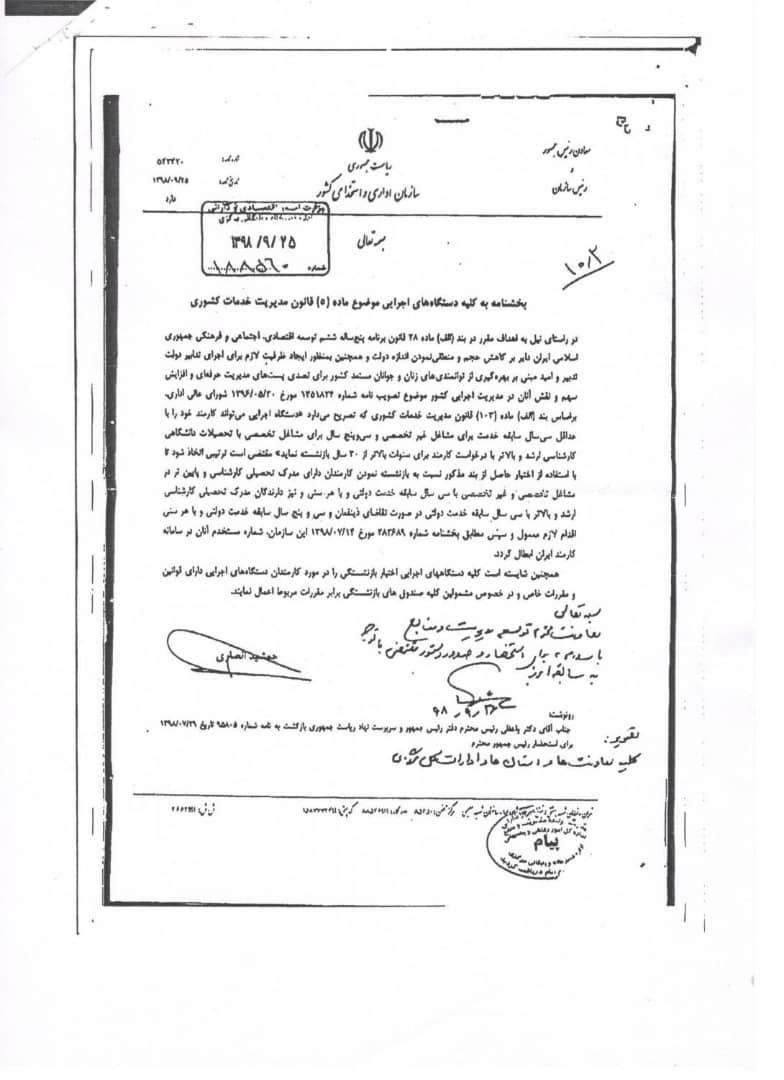 معاون رئیس جمهور
و
رئیس سازمان
ریاست جمهوری
سازمان اداری و استخدامی کشور
شماره نامه: ۵۴۳۴۲۰
تاریخ نامه: ۱۳۹۸/۰۹/۲۵
دارد
وزارت امور اقتصادی و دارائی
۱۳۹۸/۹/۲۵
شماره ۱۸۸۵۶۰
بسمه تعالی
۱۰/۲
بخشنامه به کلیه دستگاه‌های اجرایی موضوع ماده (۵) قانون مدیریت خدمات کشوری
در راستای نیل به اهداف مقرر در بند (الف) ماده ۲۸ قانون برنامه پنج‌ساله ششم توسعه اقتصادی، اجتماعی و فرهنگی جمهوری
اسلامی ایران دایر بر کاهش حجم و منطقی‌نمودن اندازه دولت و همچنین بمنظور ایجاد ظرفیت لازم برای اجرای تدابیر دولت
تدبیر و امید مبنی بر بهره‌گیری از توانمندی‌های زنان و جوانان مستعد کشور برای تصدی پست‌های مدیریت حرفه‌ای و افزایش
سهم و نقش آنان در مدیریت اجرایی کشور موضوع تصویب نامه شماره ۱۲۵۱۸۳۴ مورخ ۱۳۹۶/۰۵/۲۰ شورای عالی اداری،
براساس بند (الف) ماده (۱۰۳) قانون مدیریت خدمات کشوری که تصریح می‌دارد «دستگاه اجرایی می‌تواند کارمند خود را با
حداقل سی‌سال سابقه خدمت برای مشاغل غیر تخصصی و سی‌وپنج سال برای مشاغل تخصصی با تحصیلات دانشگاهی
کارشناسی ارشد و بالاتر با درخواست کارمند برای سنوات بالاتر از ۳۰ سال بازنشسته نماید» مقتضی است ترتیبی اتخاذ شود تا
با استفاده از اختیار حاصل از بند مذکور نسبت به بازنشسته نمودن کارمندان دارای مدرک تحصیلی کارشناسی و پایین تر در
مشاغل تخصصی و غیر تخصصی با سی سال سابقه خدمت دولتی و با هر سنی و نیز دارندگان مدرک تحصیلی کارشناسی
ارشد و بالاتر با سی سال سابقه خدمت دولتی در صورت تقاضای ذینفعان و سی و پنج سال سابقه خدمت دولتی و با هر سنی
اقدام لازم معمول و سپس مطابق بخشنامه شماره ۳۸۲۶۸۹ مورخ ۱۳۹۸/۰۷/۱۴ این سازمان، شماره مستخدم آنان در سامانه
کارمند ایران ابطال گردد.
همچنین شایسته است کلیه دستگاههای اجرایی اختیار بازنشستگی را در مورد کارمندان دستگاه‌های اجرایی دارای قوانین
و مقررات خاص و در خصوص مشمولین کلیه صندوق های بازنشستگی برابر مقررات مربوط اعمال نمایند.
جمشید انصاری
بسمه تعالی
معاونت محترم توسعه مدیریت و منابع
با سلام، برای استحضار و صدور دستور مقتضی با توجه
به سابقه
۹۸/۹/۲۶
رونوشت:
جناب آقای دکتر واعظی رئیس محترم دفتر رئیس جمهور و سرپرست نهاد ریاست جمهوری بازگشت به نامه شماره ۹۵۸۰۵ تاریخ ۱۳۹۸/۰۷/۲۹
برای استحضار رئیس جمهور محترم
تصویر:
کلیه معاونت ها و استان ها و ادارات کل
پیام